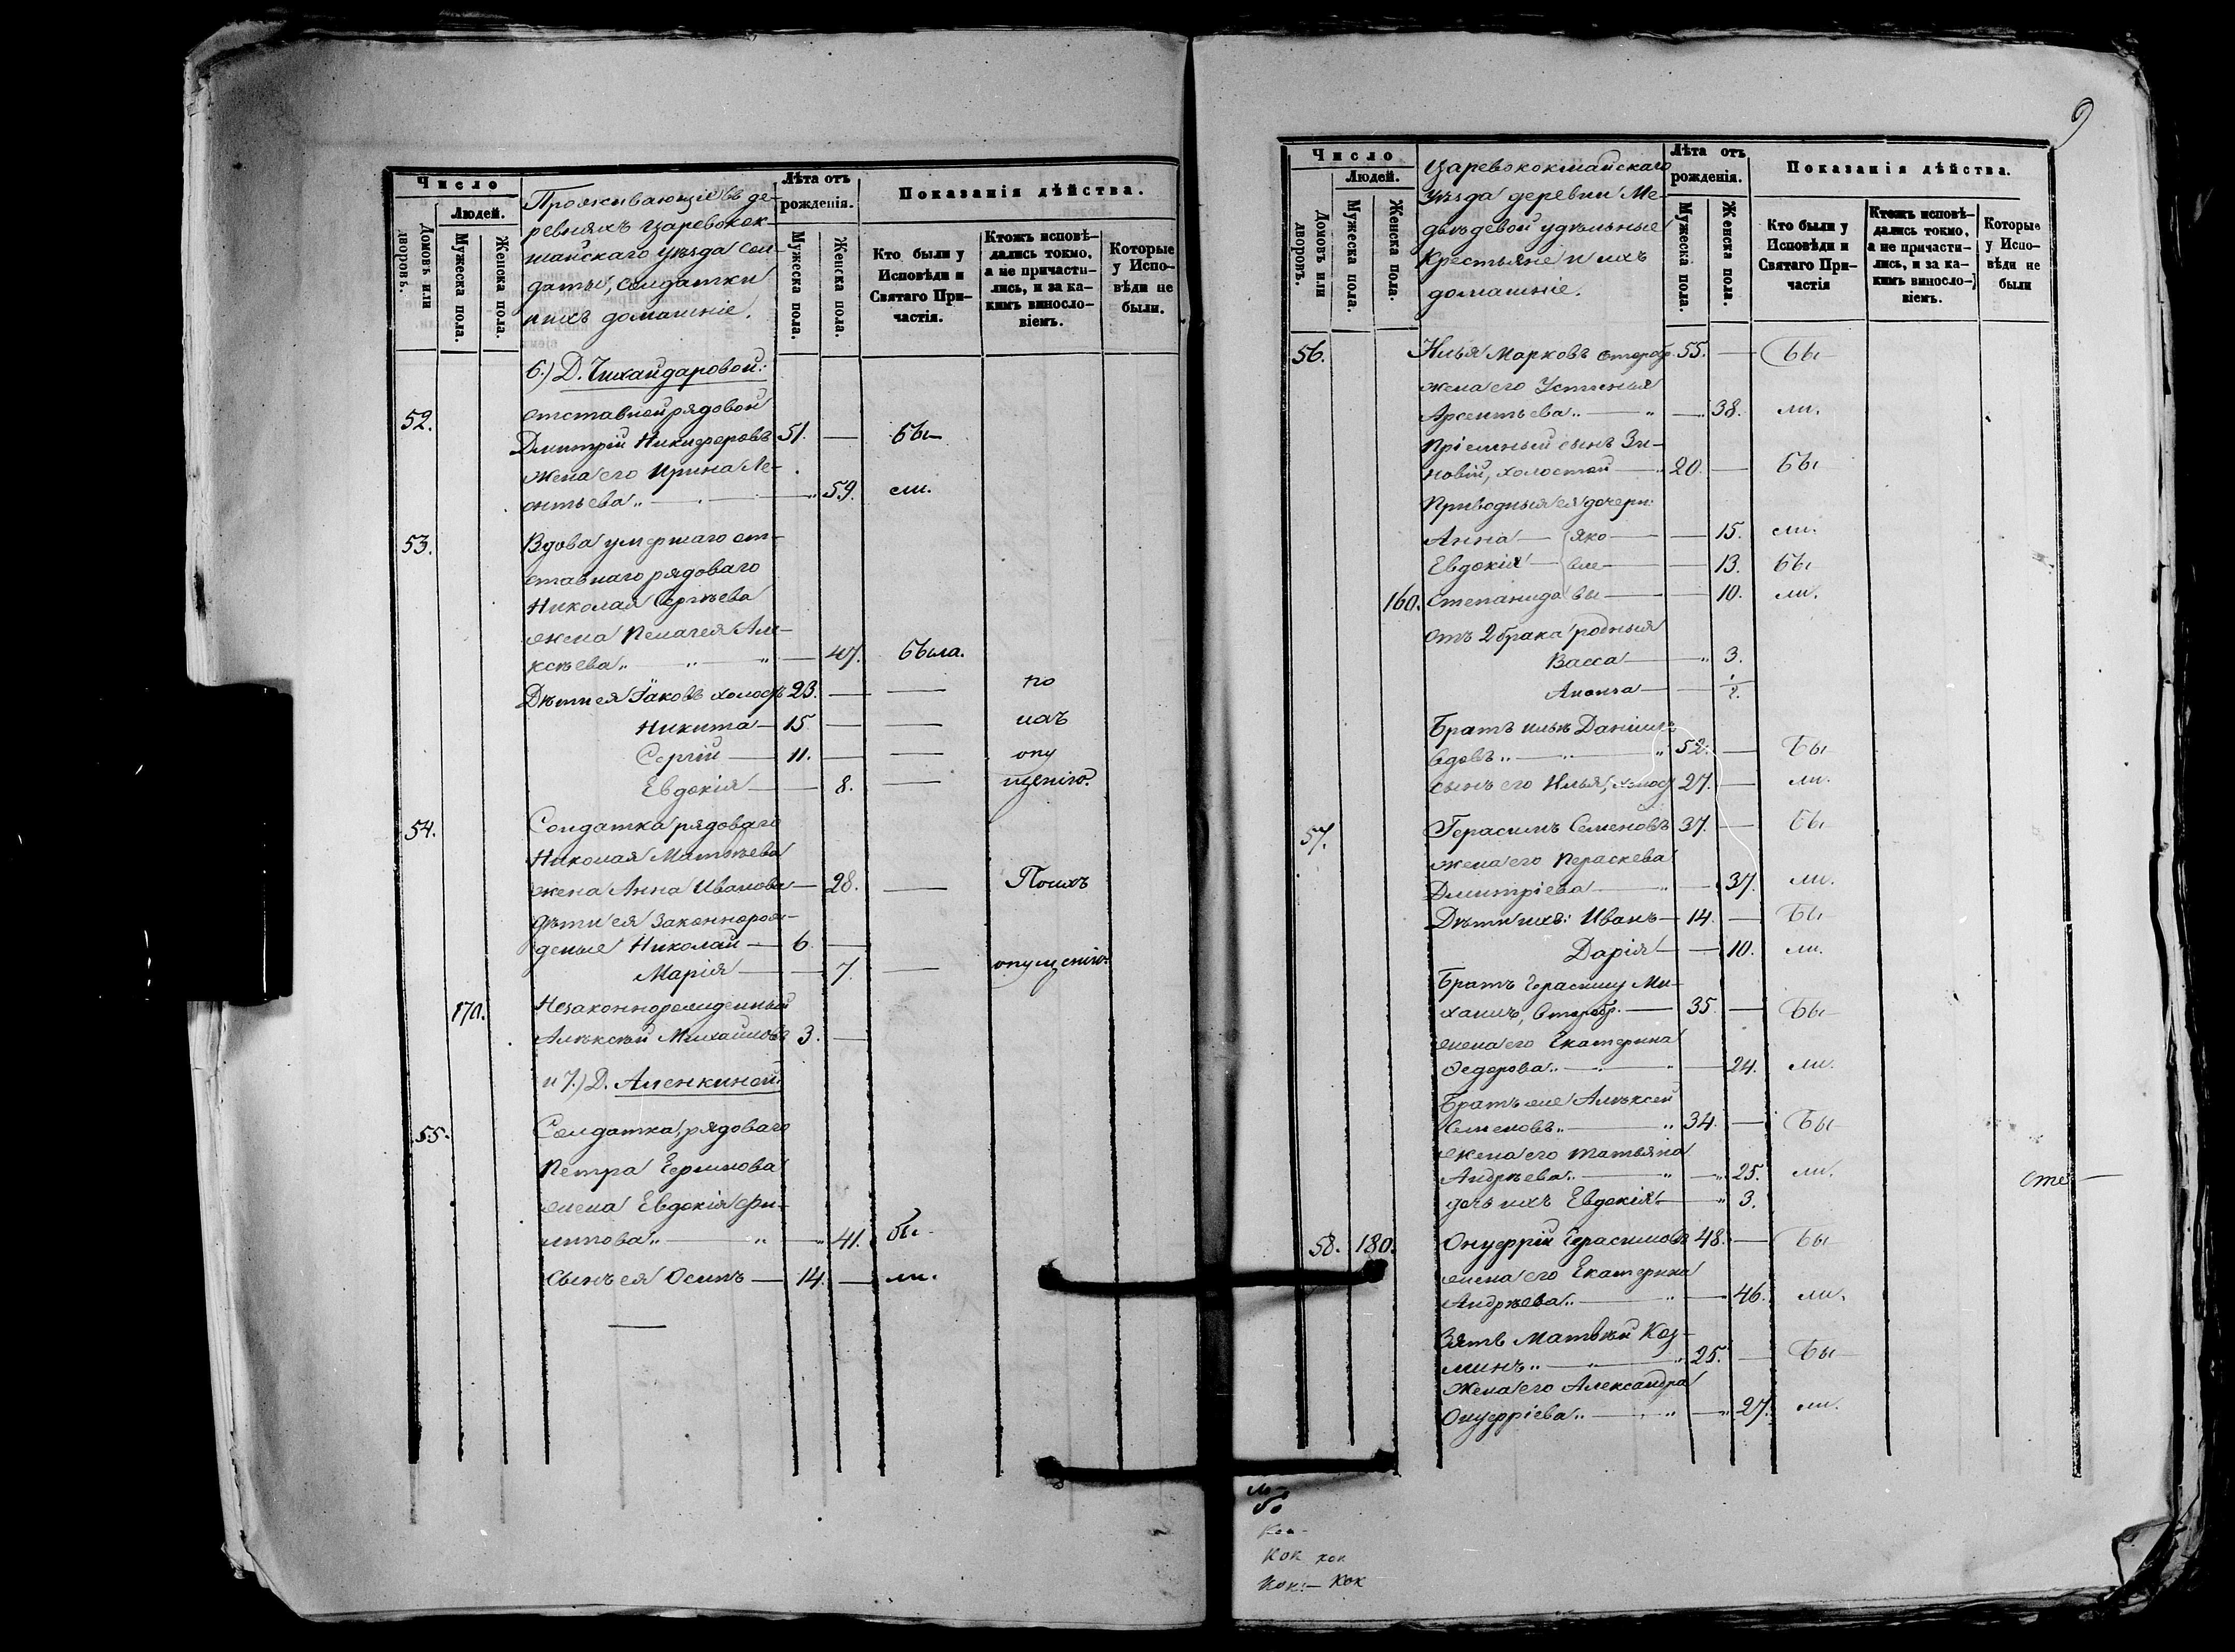 Число
Людей.
Домовъ или дворовъ.
Мужеска пола.
Женска пола.
Проживающіе въ де-
ревняхъ Царевокок-
шайскаго уѣзда сол-
даты, солдатки
и ихъ домашніе.
Лѣта отъ рожденія.
Мужеска пола.
Женска пола.
Показанія дѣйства.
Кто были у Исповѣди и Святаго При-частія.
Ктожъ исповѣ-дались токмо, а не причасти-лись, и за ка-кимъ винослo-віемъ.
Которые у Испо-вѣди не были.
6.) Д. Чихайдаровой:
52. отставной рядовой
Дмитрій Никифоровъ 51. — бы-
жена его Ирина Ле-
онтьева „ — „ 59. ли.
53. Вдова умершаго от-
ставнаго рядоваго
Николая Сергѣева
жена Пелагея Але-
ксѣева „ „ „ — 47. была.
Дѣти ея Яковъ холос. 23. — — по
Никита — 15 — — ихъ
Сергій — 11. — — опу
Евдокія — — 8. — щенію.
54. Солдатка рядоваго
Николая Матвѣева
жена Анна Иванова — 28. — По ихъ
дѣти ея законнорож-
деные Николай — 6. —
Марія — — 7. — опущенію.
170. Незаконнорожденный
Алѣксѣй Михайловъ 3. —
и 7.) Д. Аленкиной.
55. Солдатка, рядоваго
Петра Ермилова
жена Евдокія Фи-
липова „ — „ — „ 41. бы-
Сынъ ея Осипъ — 14. — ли.
9
Число
Людей.
Домовъ или дворовъ.
Мужеска пола.
Женска пола.
Царевококшайскаго
уѣзда деревни Ме-
двѣдевой удѣльные
крестьяне и ихъ
домашніе.
Лѣта отъ рожденія.
Мужеска пола.
Женска пола.
Показанія дѣйства.
Кто были у Исповѣди и Святаго При-частія
Ктожъ исповѣ-дались токмо, а не причасти-лись, и за ка-кимъ винослo-віемъ.
Которые у Испо-вѣди не были
56. Илья Марковъ вторбр. 55. — бы
жена его Устинья
Арсентьева „ — „ — 38. ли.
Пріемный сынъ Зи-
новій, холостой — „ 20. — бы
Приводныя ея дочери:
Анна — Яко — — 15. ли.
Евдокія — вле — — 13. бы
160. Степанида вы — — 10. ли.
отъ 2 брака родныя
Васса — „ 3.
Анна — — 1/2.
Братъ Ильѣ Даніилъ
вдовъ „ — „ — „ 52. — бы
сынъ его Илья, холос. 27. — ли.
57. Герасимъ Семеновъ 37. — бы
жена его Пераскева
Дмитріева — „ — 37. ли.
Дѣти ихъ: Иванъ — 14. — бы
Дарія — — 10. ли.
Братъ Герасиму Ми-
хаилъ, вторбр. — 35. — бы
жена его Екатерина
Ѳедорова „ — „ — 24. ли.
Братъ же Алѣксѣй
Семеновъ „ — „ 34. — бы
жена его Татьяна
Андрѣева „ — „ — „ 25. ли.
дочь ихъ Евдокія — „ 3.
58. 180. Онуфрій Герасимовъ 48. — бы
жена его Екатерина
Андрѣева „ — „ — 46. ли.
Зять Матвѣй Коз-
минъ „ — „ — „ 25. — бы
Жена его Александра
Онуфріева „ — „ — „ 27. ли.
Кок кок
Кок — Кок